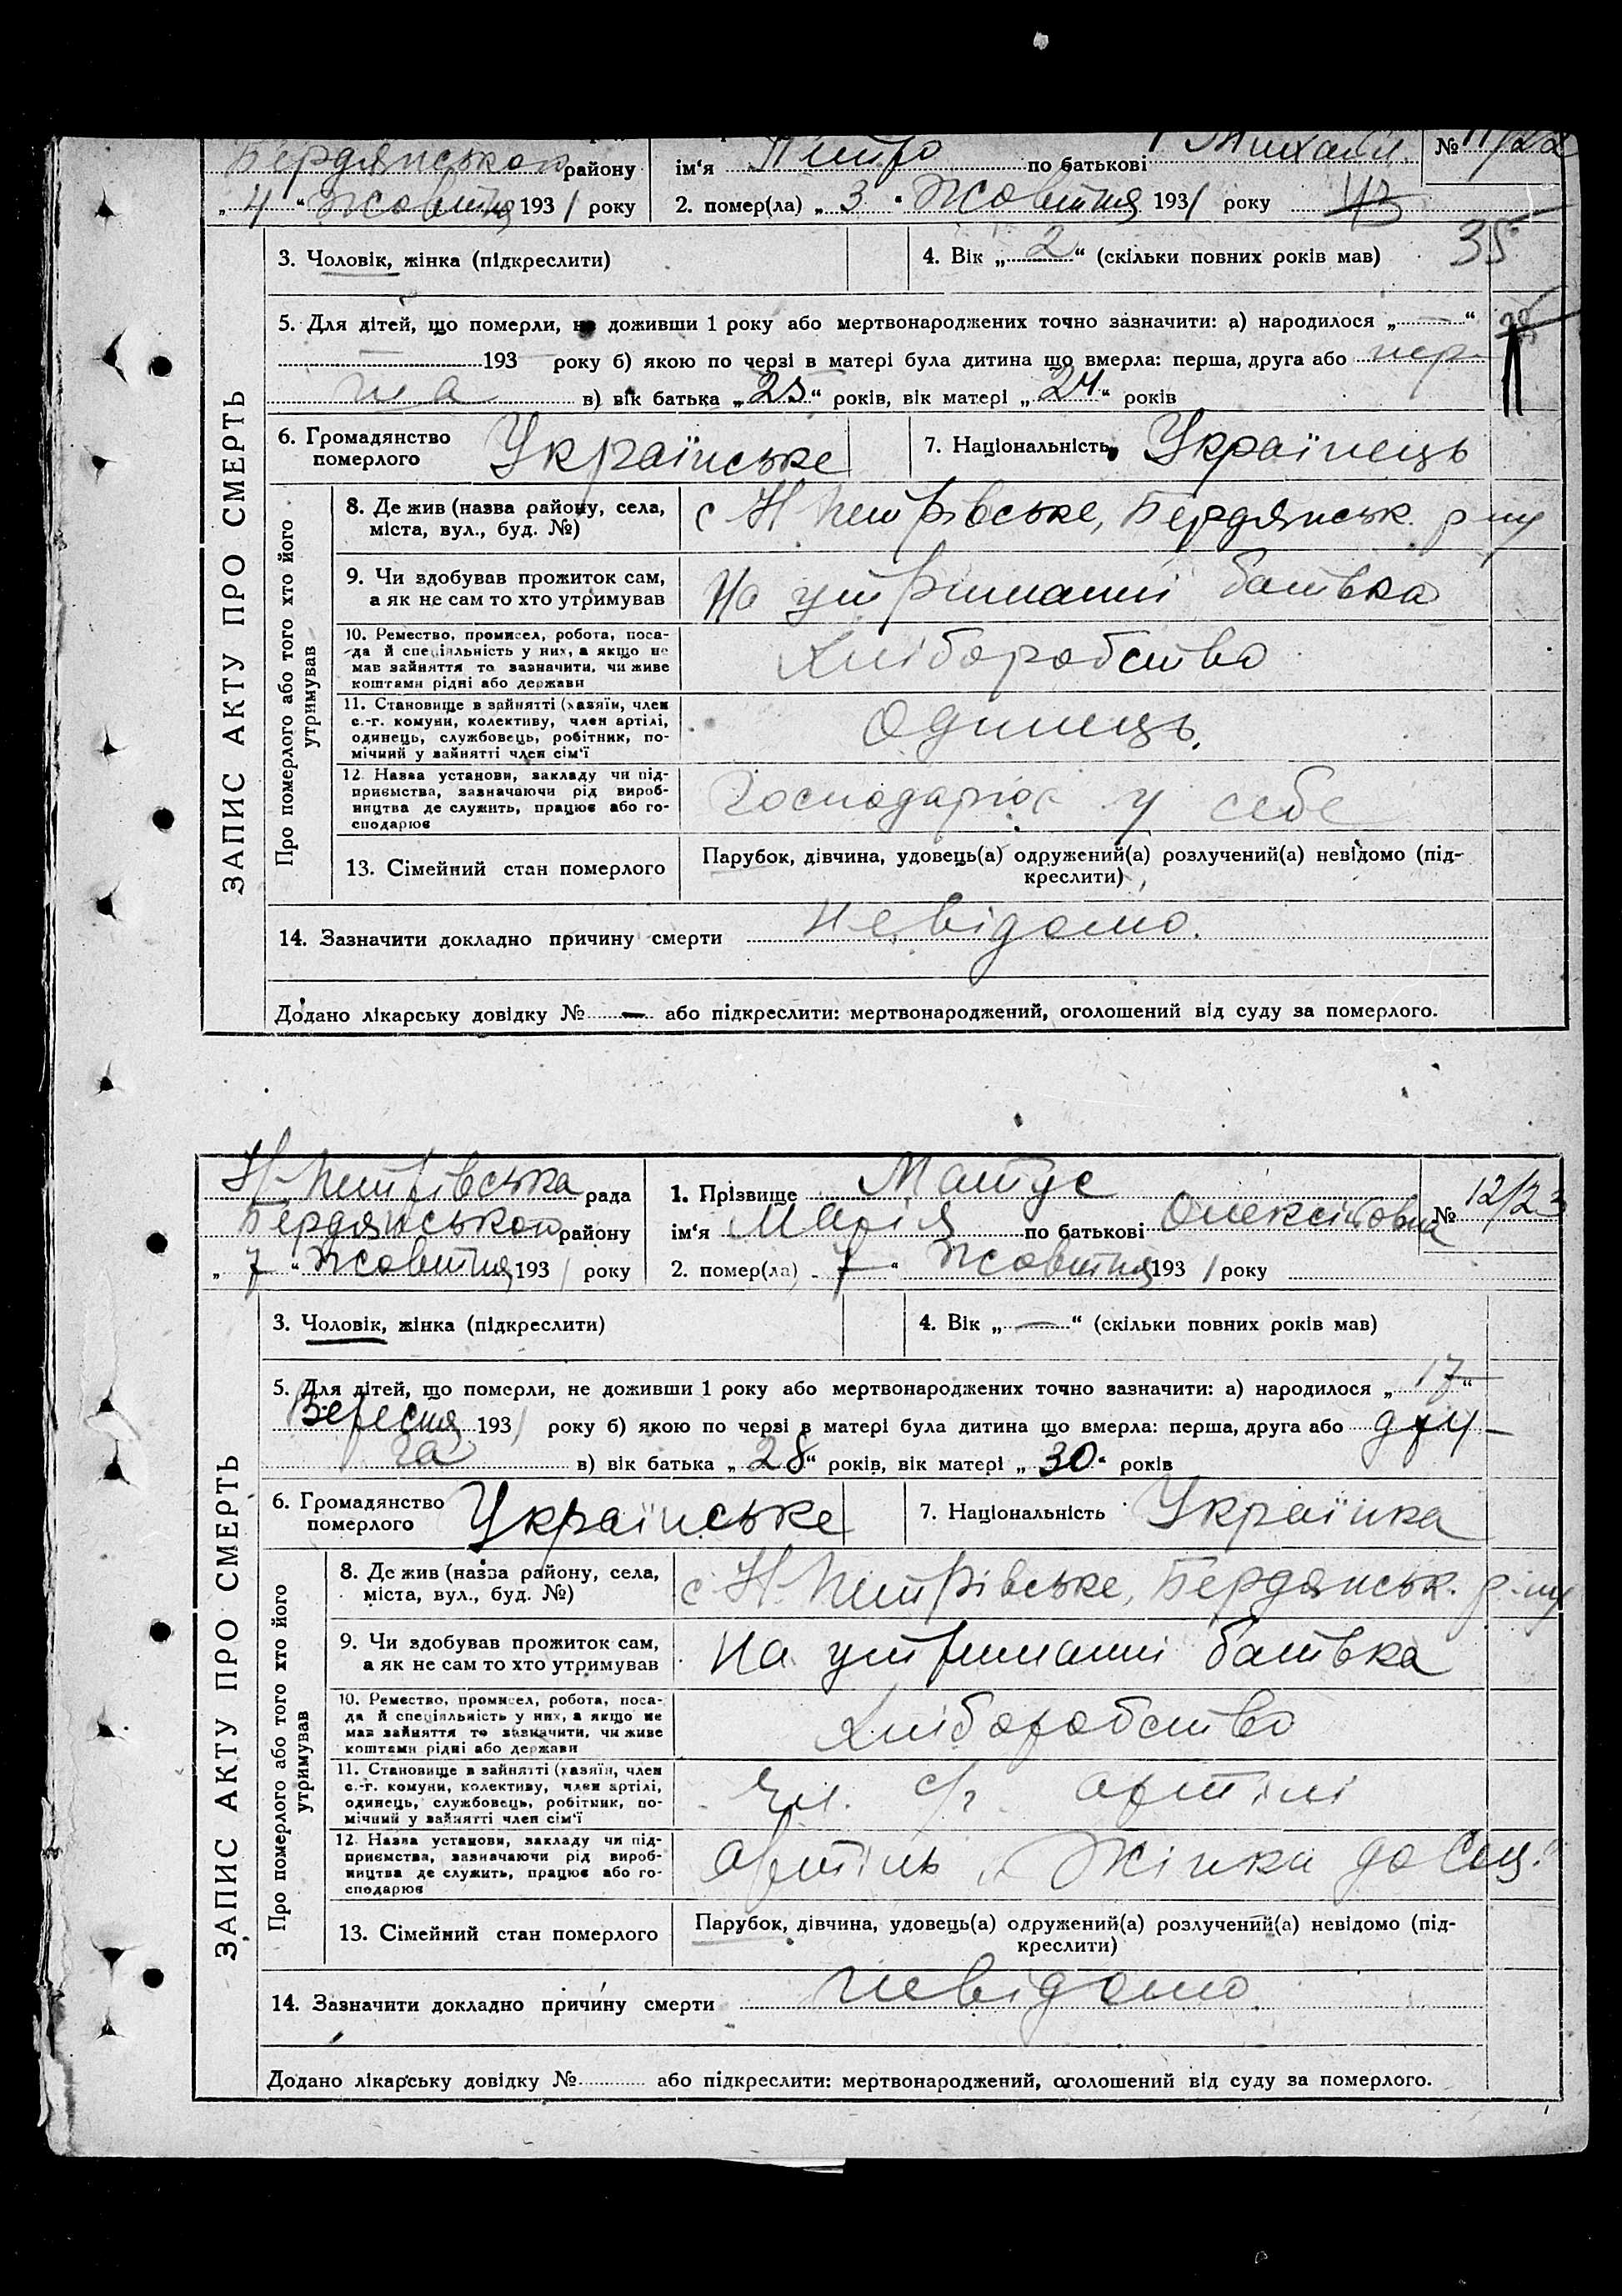 Бердянського району ім‘я Петро по батькові Михайл. № 11/22
„ 4 “ Жовтня 1931 року 2. помер(ла) „ 3 “ Жовтня 1931 року 43
3. Чоловік, жінка (підкреслити) 4. Вік „ 2 “ (скільки повних років мав) 35
5. Для дітей, що померли, не доживши 1 року або мертвонароджених точно зазначити: а) народилося „ — “
— 193 року б) якою по черзі в матері була дитина що вмерла: перша, друга або пер-
ша в) вік батька „ 25 “ років, вік матері „ 24 “ років
6. Громадянство
померлого Українське 7. Національність Українець
ЗАПИС АКТУ ПРО СМЕРТЬ
Про померлого або того хто його
утримував
8. Де жив (назва району, села,
міста, вул., буд. №) с Н Петрівське, Бердянськ. р-ну
9. Чи здобував прожиток сам,
а як не сам то хто утримував На утриманні батька
10. Ремество, промисел, робота, поса-
да й спеціяльність у них, а якщо не
мав зайняття то зазначити, чи живе
коштами рідні або держави Хліборобство
11. Становище в зайнятті (хазяїн, член
с.-г. комуни, колективу, член артілі,
одинець, службовець, робітник, по-
мічний у зайнятті член сім‘ї Одинець.
12. Назва установи, закладу чи під-
приємства, зазначаючи рід вироб-
ництва де служить, працює або го-
сподарює Господарює у себе
13. Сімейний стан померлого Парубок, дівчина, удовець(а) одружений(а) розлучений(а) невідомо (під-
креслити)
14. Зазначити докладно причину смерти невідомо.
Додано лікарську довідку № — або підкреслити: мертвонароджений, оголошений від суду за померлого.
Н-Петрівська рада 1. Прізвище Матус
Бердянського району ім‘я Марія по батькові Олексіївна № 12/23
„ 7 “ Жовтня 1931 року 2. помер(ла) „ 7 “ Жовтня 1931 року
3. Чоловік, жінка (підкреслити) 4. Вік „ — “ (скільки повних років мав)
5. Для дітей, що померли, не доживши 1 року або мертвонароджених точно зазначити: а) народилося „ 17 “
Вересня 1931 року б) якою по черзі в матері була дитина що вмерла: перша, друга або дру-
га в) вік батька „ 28 “ років, вік матері „ 30 “ років
6. Громадянство
померлого Українське 7. Національність Українка
ЗАПИС АКТУ ПРО СМЕРТЬ
Про померлого або того хто його
утримував
8. Де жив (назва району, села,
міста, вул., буд. №) с Н-Петрівське, Бердянськ. р-ну
9. Чи здобував прожиток сам,
а як не сам то хто утримував На утриманні батька
10. Ремество, промисел, робота, поса-
да й спеціяльність у них, а якщо не
мав зайняття то зазначити, чи живе
коштами рідні або держави Хліборобство
11. Становище в зайнятті (хазяїн, член
с.-г. комуни, колективу, член артілі,
одинець, службовець, робітник, по-
мічний у зайнятті член сім‘ї Чл. с/г. артілі
12. Назва установи, закладу чи під-
приємства, зазначаючи рід вироб-
ництва де служить, працює або го-
сподарює Артіль „Жінка до Соц.“
13. Сімейний стан померлого Парубок, дівчина, удовець(а) одружений(а) розлучений(а) невідомо (під-
креслити)
14. Зазначити докладно причину смерти невідомо.
Додано лікарську довідку № або підкреслити: мертвонароджений, оголошений від суду за померлого.